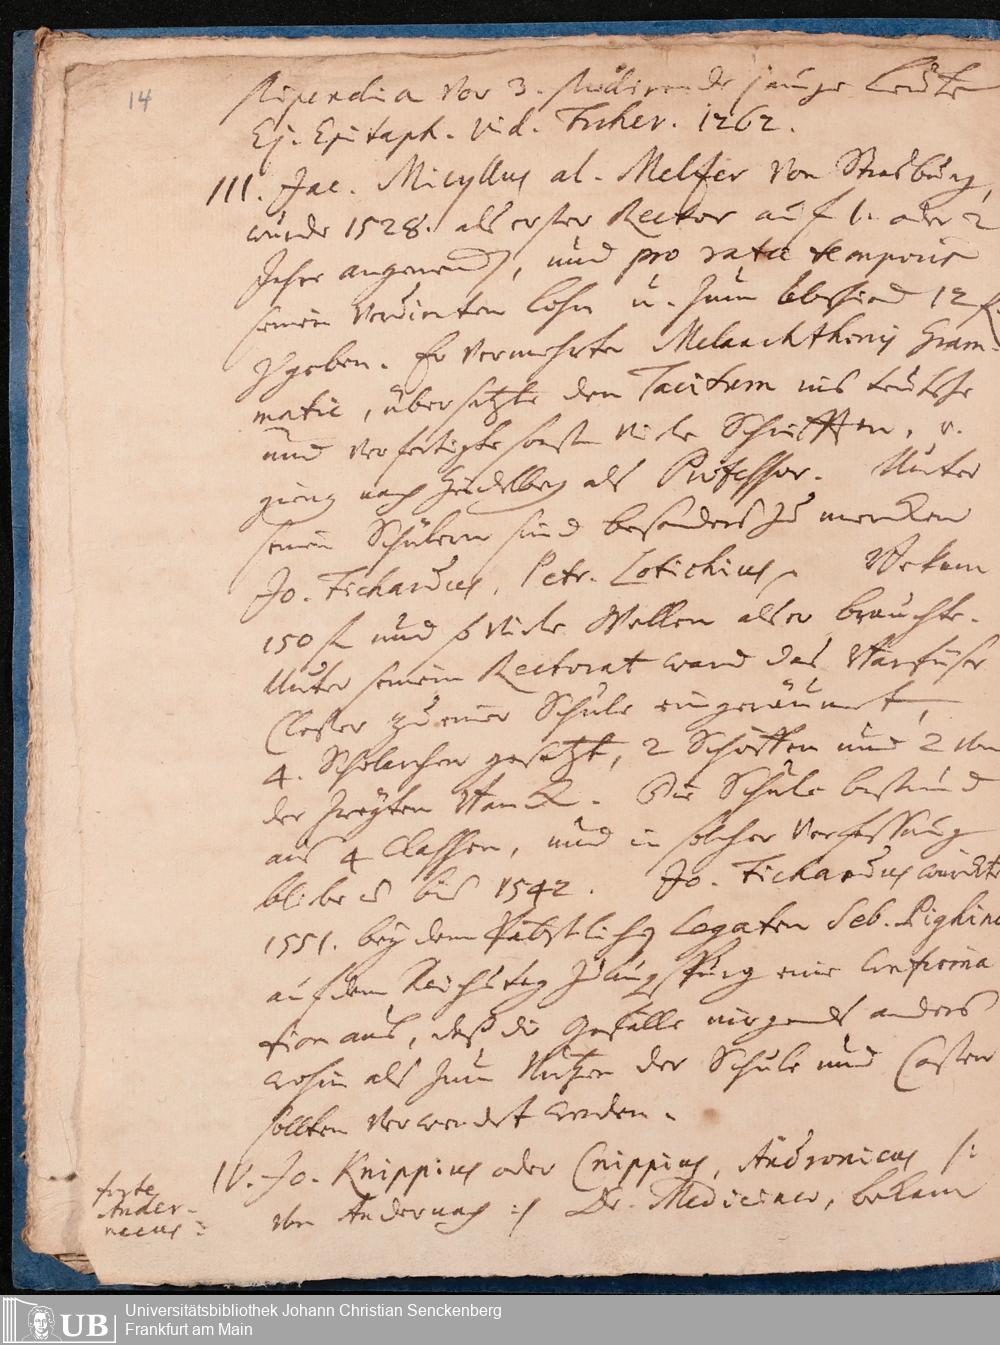 14
Stipendia vor 3. studirende junge Leute
Ej. Epitaph. vid. Ficher. 1262.
III. Jac. Micyllus al. Melzer von Strasburg,
wurde 1528. als erster Rector auf 1. oder 2
Jahre angenomen, und pro rata temporis
seinen verdienten Lohn u. zum Abschied 12 f.
zugeben. Er vermehrte Melanchthonis Gram-
matic, übersetzte den Tacitum ins teutsche
und verfertigte sonst viele Schrifften, u.
gieng nach Heidelberg als Professor. Unter
seinen Schülern sind besonders zu mercken
Jo. Fichardus, Petr. Lotichius. Bekam
150 f. und so viele Wellen als er brauchte.
Unter seinem Rectorat ward das Barfüser
Closter zu einer Schule eingeräumt,
4. Scholarchen gesetzt, 2 Schöffen und 2 von
der zweyten Banck. Die Schule bestund
aus 4 Classen, und in solcher Verfassung
bliebe es bis 1542. Jo. Fichardus würckte
1551. bey dem Päbstlichen Legaten Seb. Pighino
auf dem Reichstag zu Augspurg eine Confirma
tion aus, daß die Gefälle nirgends anders
wohin als zum Nutzen der Schule und Casten
sollten verwendet werden.
IV. Jo. Knippius oder Cnippius, Andronicus /:
von Andernach :/ Dr. Medicinae, bekam
forte
Ander-
nacus:
Universitätsbibliothek Johann Christian Senckenberg
Frankfurt am Main
UB